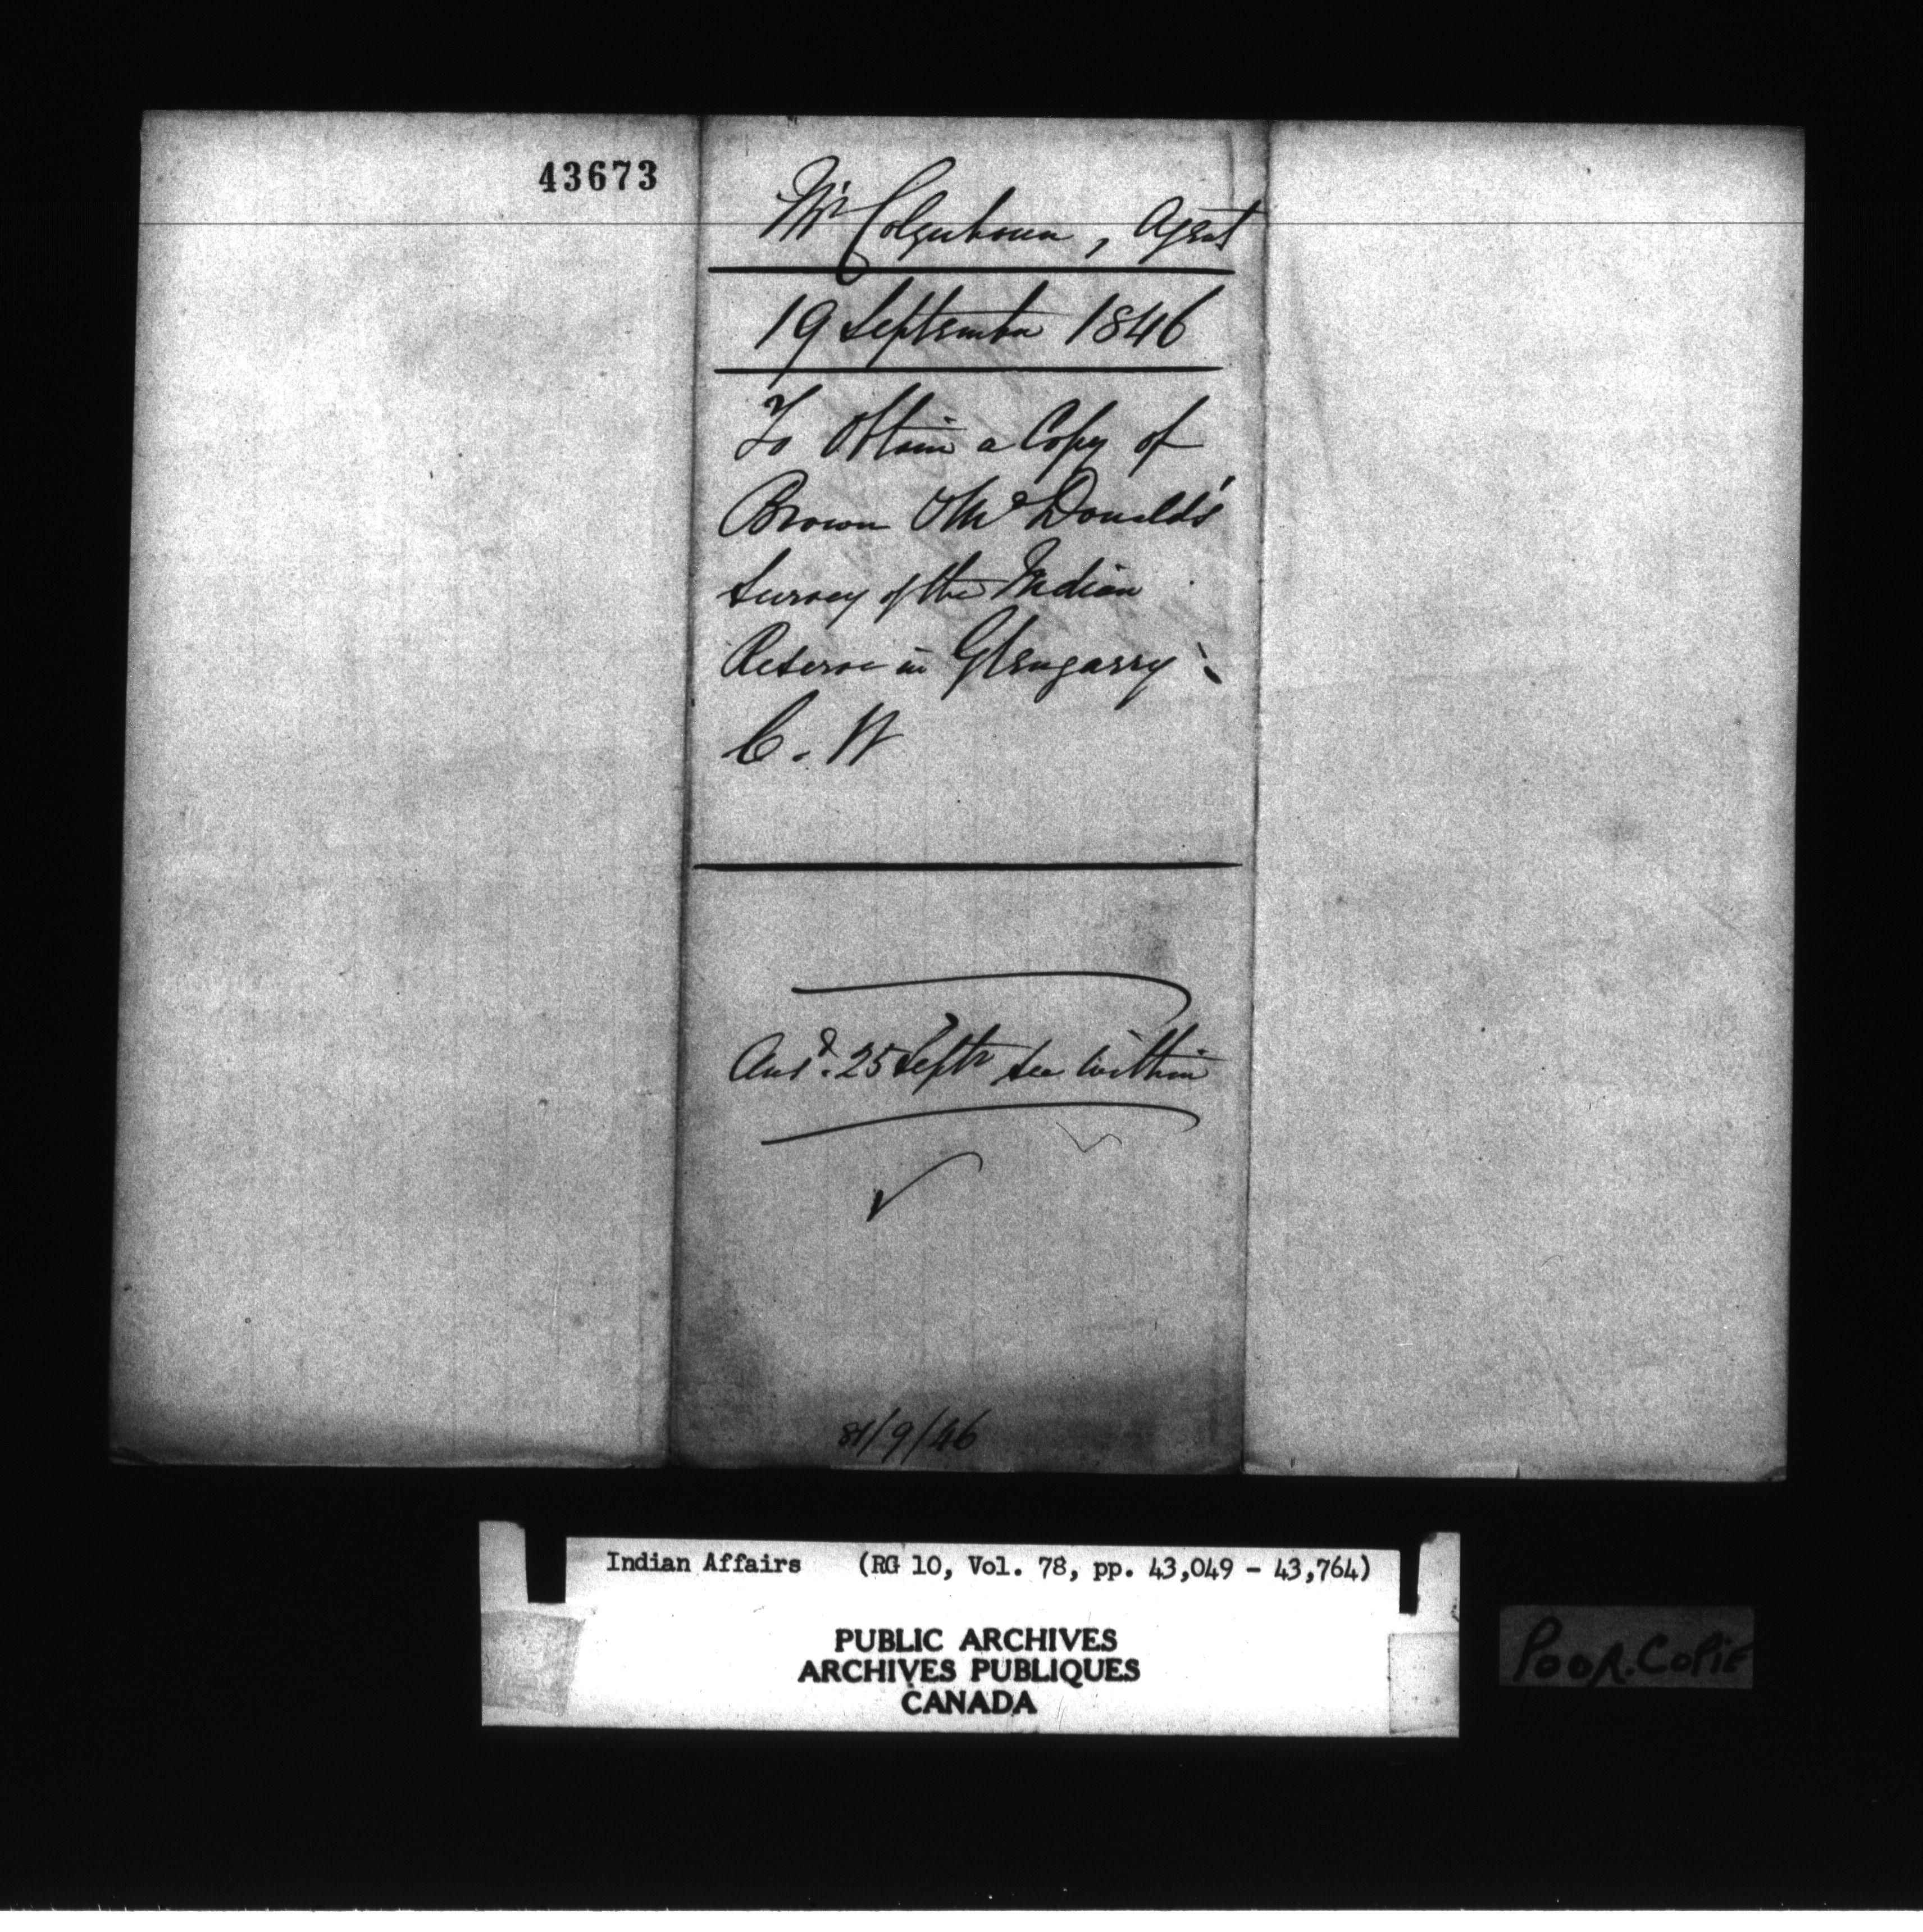 43673
Mr Colquhoun, Agent
19 September 1846
To Obtain a Copy of
Brown & McDonalds'
Survey of the Indian
Reserve in Glengarry
C. W
Ansd. 25 Septr see within
81/9/46
Indian Affairs (RG 10, Vol. 78, pp. 43,049 - 43,764)
PUBLIC ARCHIVES
ARCHIVES PUBLIQUES
CANADA
POOR.COPIE